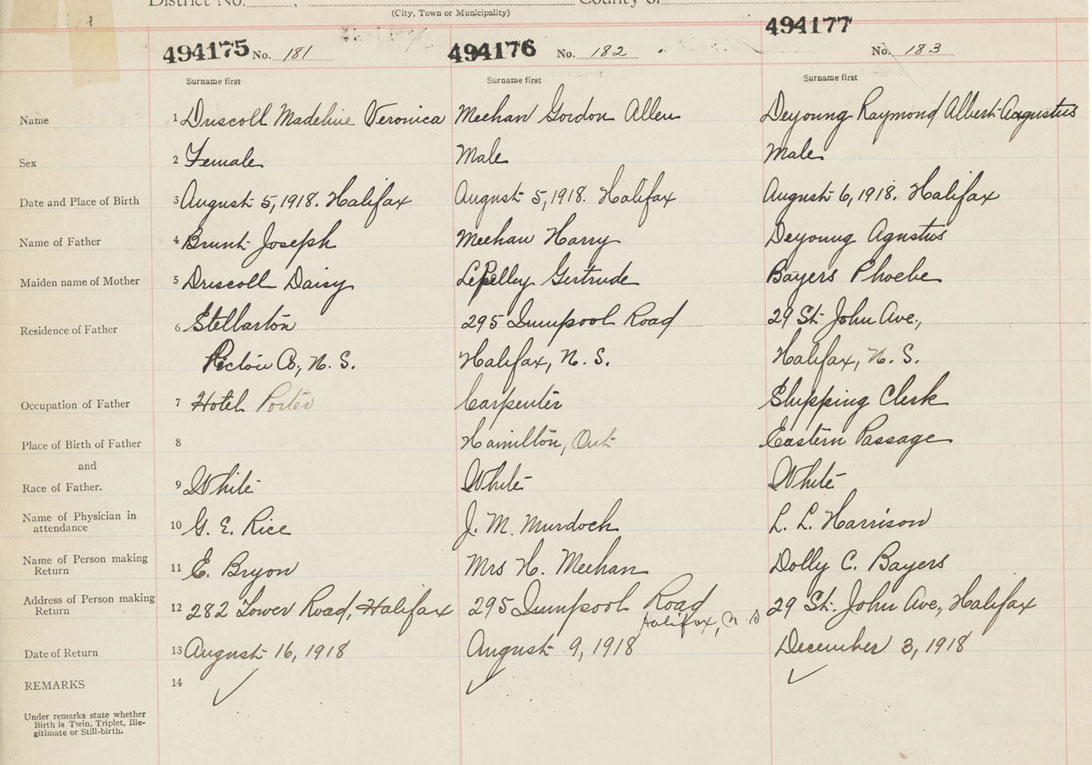 District No. , County of
(City, Town or Municipality)
494175 No. 181 494176 No. 182 494177 No. 183
Surname first Surname first Surname first
Name 1 Driscoll Madeline Veronica Meehan Gordon Allen Deyoung Raymond Albert Augustus
Sex 2 Female Male Male
Date and Place of Birth 3 August 5, 1918. Halifax August 5, 1918. Halifax August 6, 1918. Halifax
Name of Father 4 Brunt Joseph Meehan Harry Deyoung Agustus
Maiden name of Mother 5 Driscoll Daisy LePelley Gertrude Bayers Phoebe
Residence of Father 6 Stellarton 295 Road 29 St. John Ave.,
Pictou Co, N.S. Halifax, N.S. Halifax, N.S.
Occupation of Father 7 Hotel Porter Carpenter Shipping Clerk
Place of Birth of Father 8 Hamilton, Ont Eastern Passage
and
Race of Father. 9 White White White
Name of Physician in attendance 10 G. E. Rice J. M. Murdoch L. L. Harrison
Name of Person making Return 11 E. Bryon Mrs H. Meehan Dolly C. Bayers
Address of Person making Return 12 282 Tower Road, Halifax 295 Road Halifax, N.S 29 St. John Ave, Halifax
Date of Return 13 August 16, 1918 August 9, 1918 December 3, 1918
REMARKS 14
Under remarks state whether
Birth is Twin, Triplet, Ille-
gitimate or Still-birth.